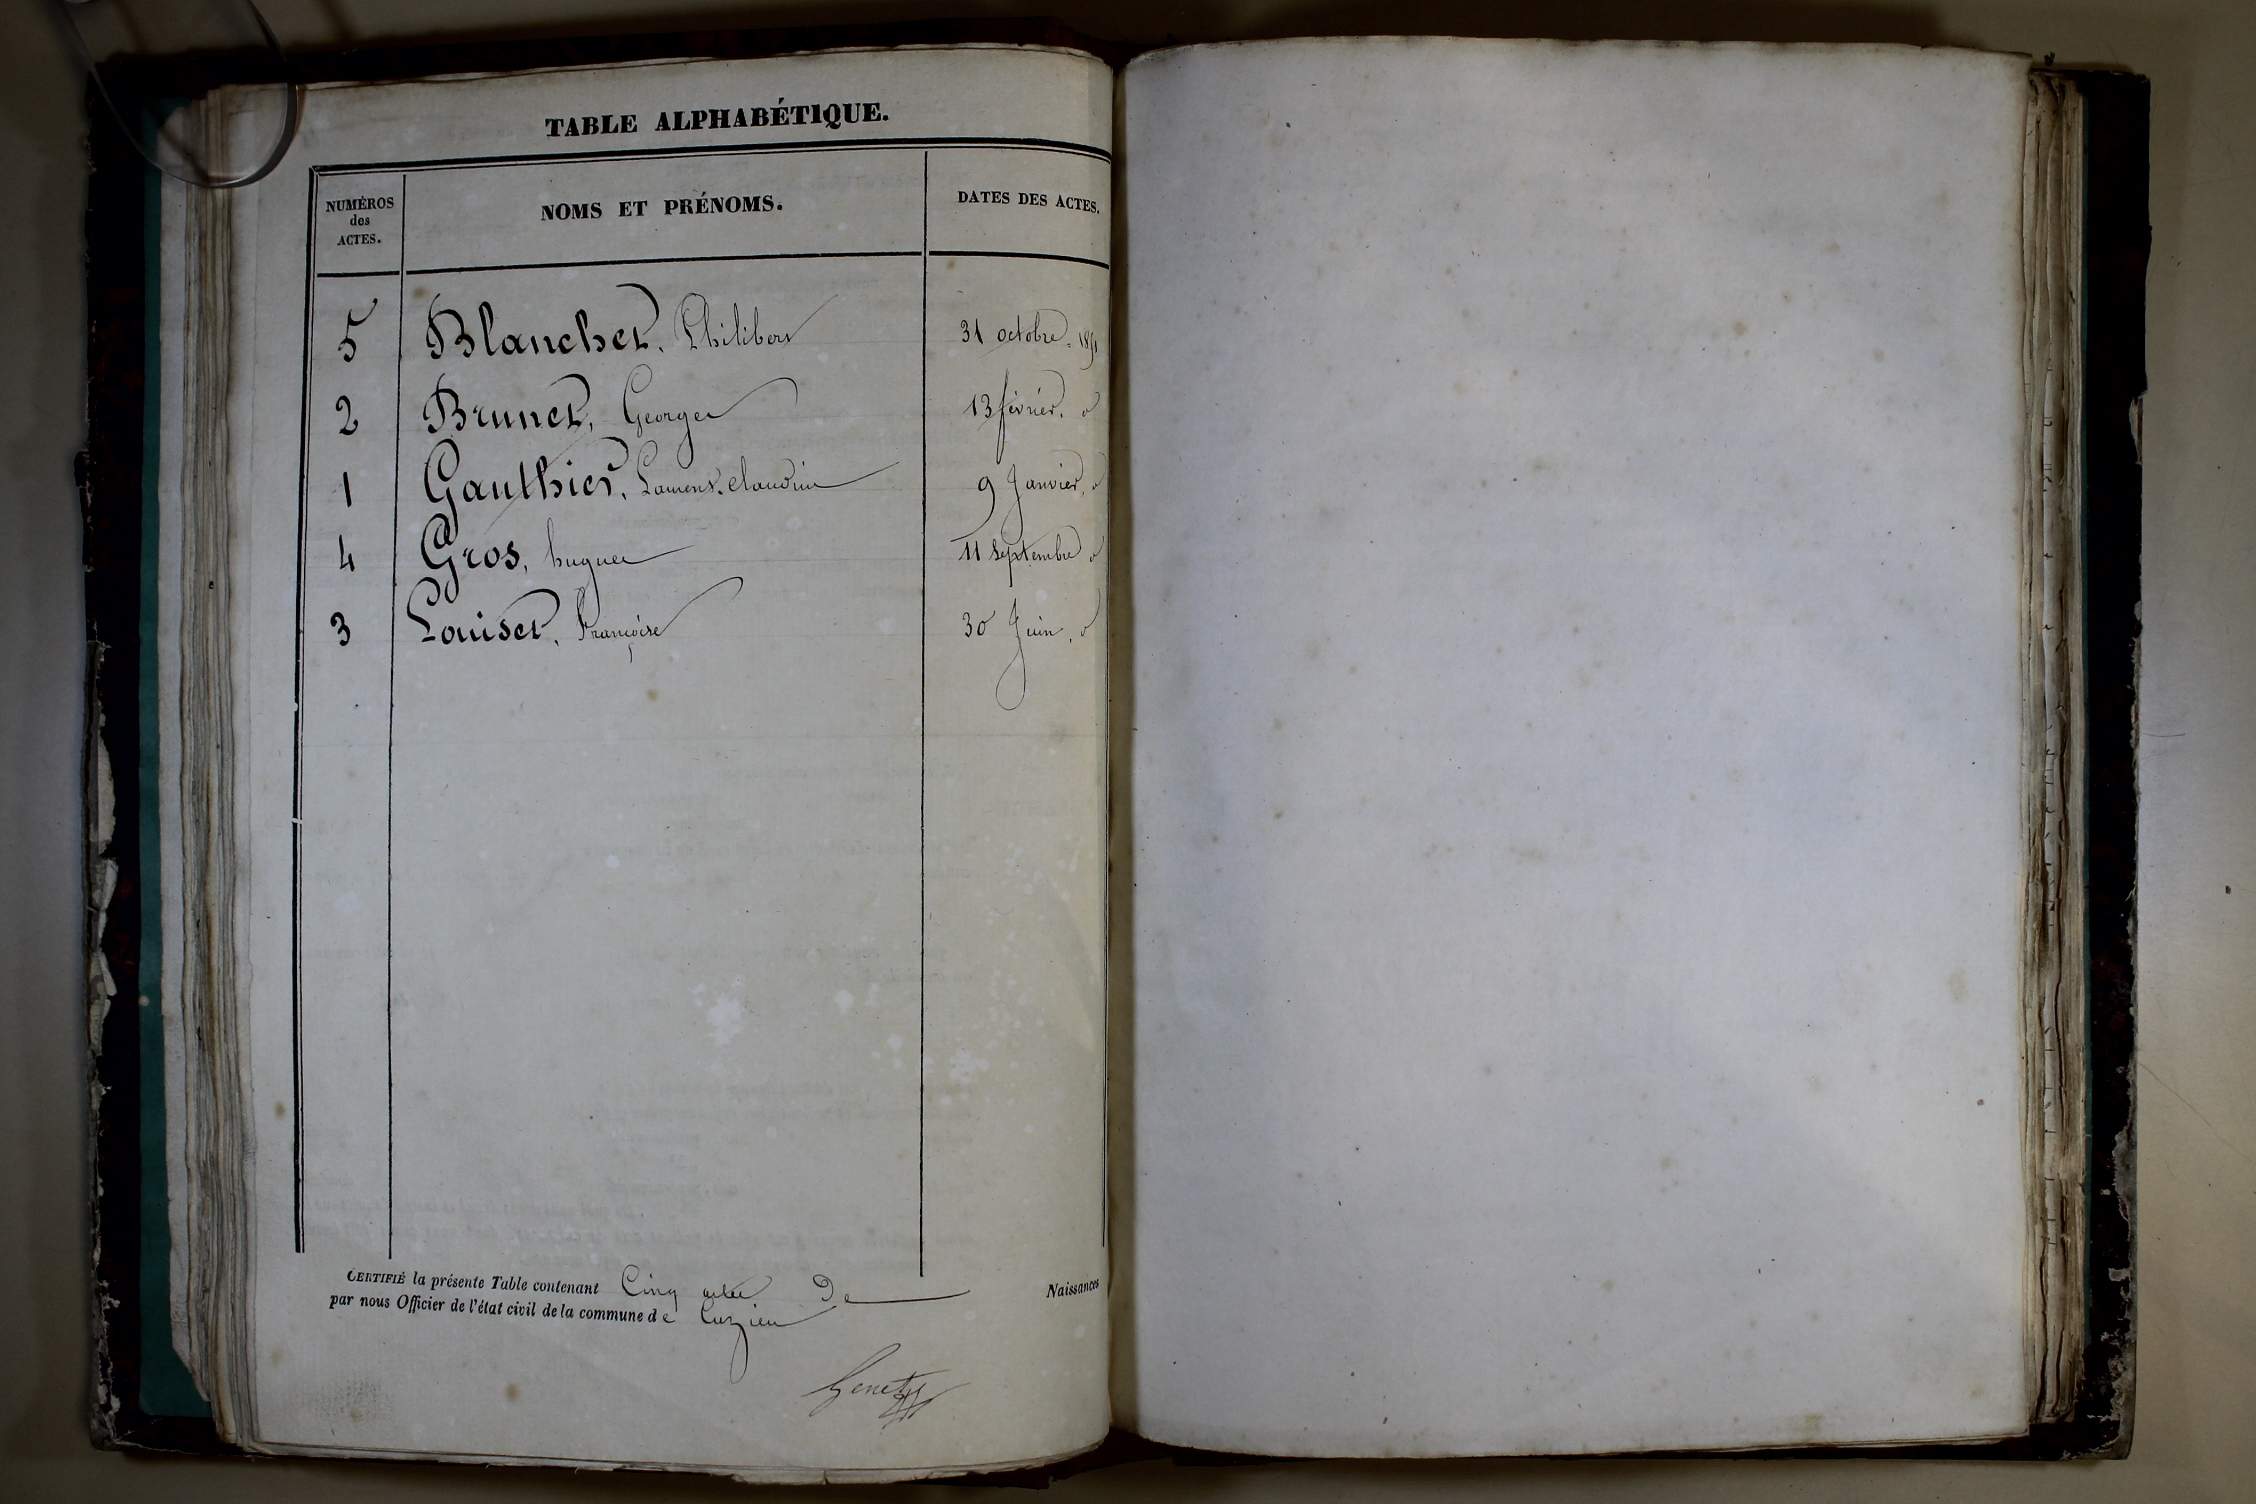 TABLE ALPHABÉTIQUE.
NUMÉROS des ACTES. NOMS ET PRÉNOMS. DATES DES ACTES.
5 Blanchet, Philibert 31 octobre 1851
2 Brunet, George 13 février, d
1 Gauthier, Laurent Claudin 9 Janvier, d
4 Gros, hugues 11 Septembre d
3 Louiset, Françoise 30 Juin, d
CERTIFIÉ la présente Table contenant Cinq actes De Naissances
par nous Officier de l'état civil de la commune de Cuzieu
Genet